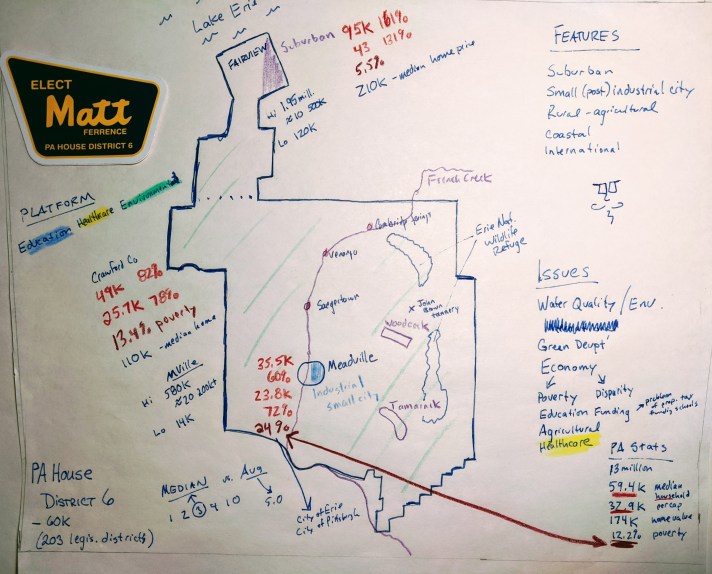 Lake Erie
FAIRVIEW
Suburban
95K 161%
43 131%
5.5%
210K - median home price
Hi 1.95 mill.
≈ 10 500K
Lo 120K
ELECT
Matt
FERRENCE
PA HOUSE DISTRICT 6
PLATFORM
Education Healthcare Environment
Crawford Co
49K 82%
25.7K 78%
13.4% poverty
110K - median home
MVille
Hi 580K
≈ 20 200K+
Lo 14K
French Creek
Cambridge Springs
Venango
Saegertown
Erie Nat.
Wildlife
Refuge
x John
Brown
tannery
Woodcock
Meadville
Industrial
small city
35.5K
60%
23.8K
72%
24%
Tamarack
PA House
District 6
- 60K
(203 legis. districts)
MEDIAN vs. Avg
1 2 3 4 10
5.0
City of Erie
City of Pittsburgh
FEATURES
Suburban
Small (post) industrial city
Rural - agricultural
Coastal
International
ISSUES
Water Quality / Env.
Green Devpt
Economy
Poverty Disparity
Education Funding
problem
of prop. tax
funding schools
Agricultural
Healthcare
PA Stats
13 million
59.4K median
household
32.9K per cap
174K home value
12.2% poverty